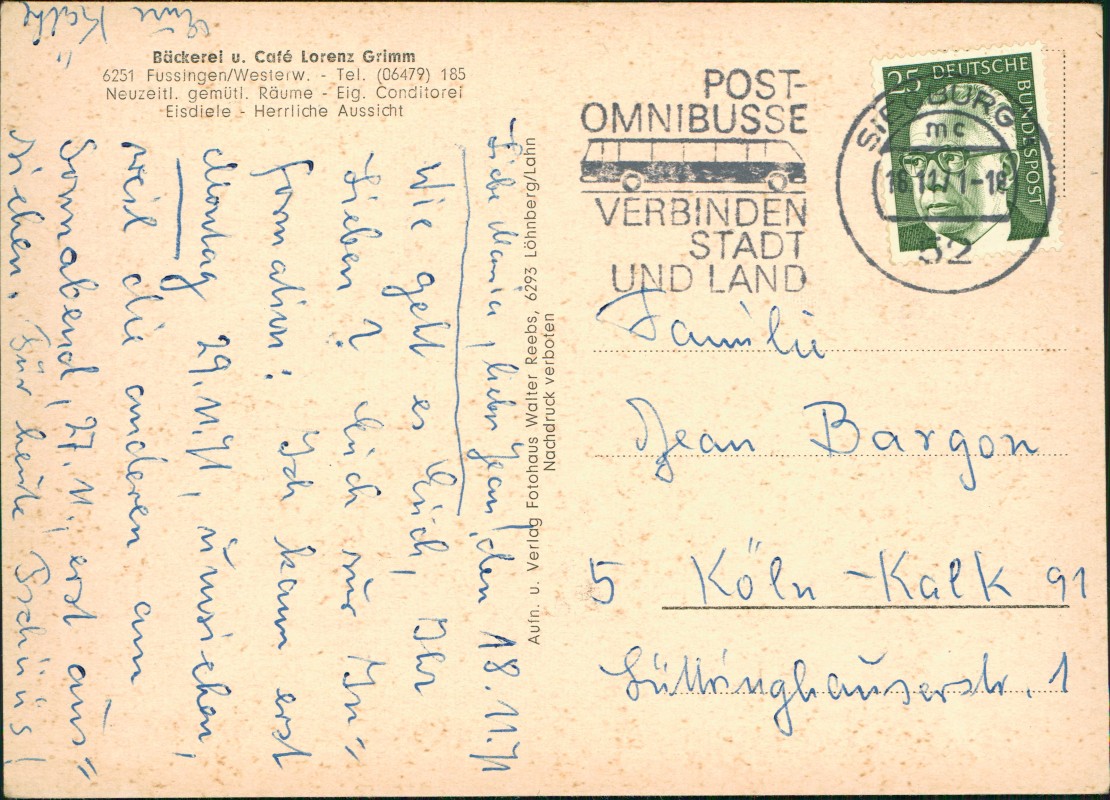 Bäckerei u. Café Lorenz Grimm
6251 Fussingen/Westerw. - Tel. (06479) 185
Neuzeitl. gemütl. Räume - Eig. Conditorei
Eisdiele - Herrliche Aussicht
Liebe Maria, lieber Jean, den 18.11.71
Wie geht es Euch, Ihr
Lieben? Euch zur In=
formation: Ich kann erst
Montag 29.11.71, umziehen,
weil die anderen am
Sonnabend, 27.11., erst aus=
ziehen. Für heute Tschüüs!
Eure Käthe
Aufn. u. Verlag Fotohaus Walter Reebs, 6293 Löhnberg/Lahn
Nachdruck verboten
POST-
OMNIBUSSE
VERBINDEN
STADT
UND LAND
SIEGBURG
mc
18.11.71-18
52
25 DEUTSCHE BUNDESPOST
Familie
Jean Bargon
5 Köln-Kalk 91
Lüttringhauserstr. 1